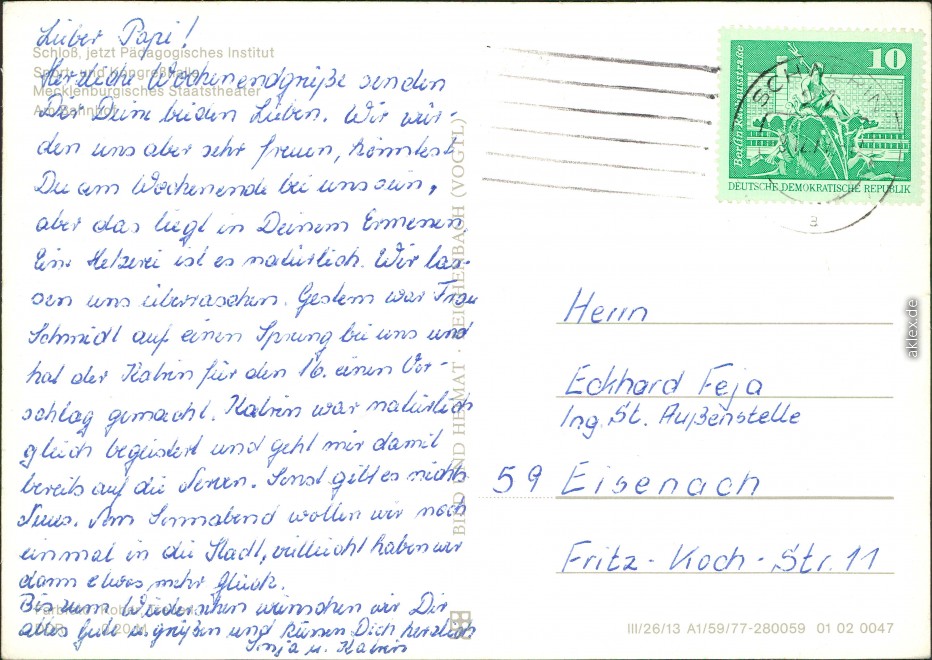 Lieber Papi!
Schloß, jetzt Pädagogisches Institut
Sport- und Kongreßhalle
Herzliche Wochenendgrüße senden
Mecklenburgisches Staatstheater
Dir Deine beiden Lieben. Wir wür-
Am Bahnhof
den uns aber sehr freuen, könntest
Du am Wochenende bei uns sein,
aber das liegt in Deinem Ermessen.
Eine Hetzerei ist es natürlich. Wir las-
sen uns überraschen. Gestern war Frau
Schmidt auf einen Sprung bei uns und
hat der Katrin für den 16. einen Vor-
schlag gemacht. Katrin war natürlich
gleich begeistert und geht mir damit
bereits auf die Nerven. Sonst gibt es nichts
Neues. Am Sonnabend wollen wir noch
einmal in die Stadt, vielleicht haben wir
dann etwas mehr Glück.
Bis zum Wiedersehen wünschen wir Dir
alles Gute u. grüßen und küssen Dich herzlich
0,20 M
Sonja u. Katrin
BILD UND HEIMAT · REICHENBACH (VOGTL)
10
Berlin, Rathausstraße
DEUTSCHE DEMOKRATISCHE REPUBLIK
SCHWERIN
a
Herrn
Eckhard Feja
Ing. St. Außenstelle
59 Eisenach
Fritz-Koch-Str. 11
III/26/13 A1/59/77-280059 01 02 0047
aklex.de